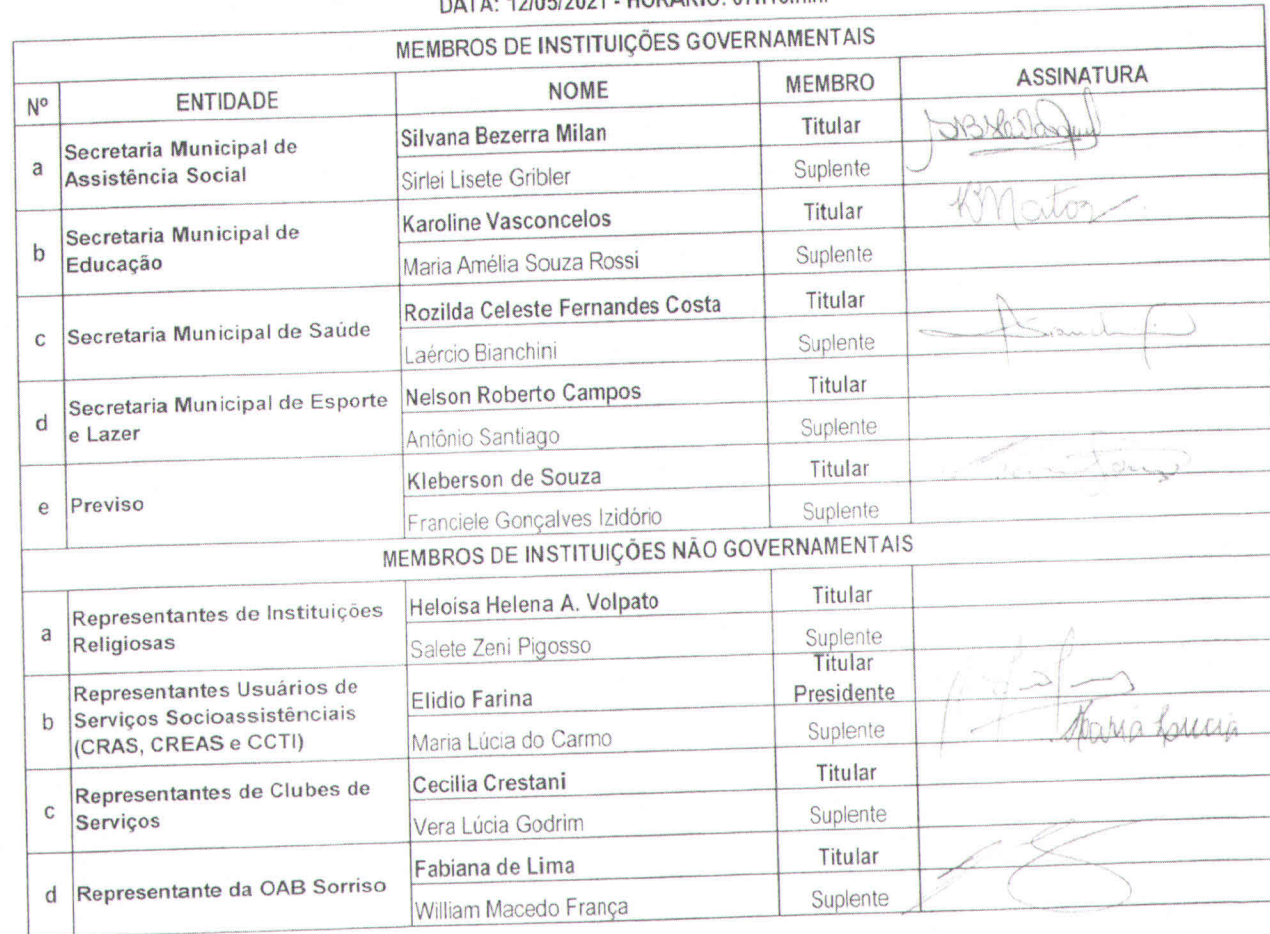 DATA: 12/05/2021 - HORÁRIO:
MEMBROS DE INSTITUIÇÕES GOVERNAMENTAIS
Nº ENTIDADE NOME MEMBRO ASSINATURA
a Secretaria Municipal de Assistência Social Silvana Bezerra Milan Titular
Sirlei Lisete Gribler Suplente
b Secretaria Municipal de Educação Karoline Vasconcelos Titular KMatos
Maria Amélia Souza Rossi Suplente
c Secretaria Municipal de Saúde Rozilda Celeste Fernandes Costa Titular
Laércio Bianchini Suplente
d Secretaria Municipal de Esporte e Lazer Nelson Roberto Campos Titular
Antônio Santiago Suplente
e Previso Kleberson de Souza Titular
Franciele Gonçalves Izidório Suplente
MEMBROS DE INSTITUIÇÕES NÃO GOVERNAMENTAIS
a Representantes de Instituições Religiosas Heloisa Helena A. Volpato Titular
Salete Zeni Pigosso Suplente
b Representantes Usuários de Serviços Socioassistênciais (CRAS, CREAS e CCTI) Elidio Farina Titular Presidente
Maria Lúcia do Carmo Suplente Maria Lucia
c Representantes de Clubes de Serviços Cecilia Crestani Titular
Vera Lúcia Godrim Suplente
d Representante da OAB Sorriso Fabiana de Lima Titular
William Macedo França Suplente